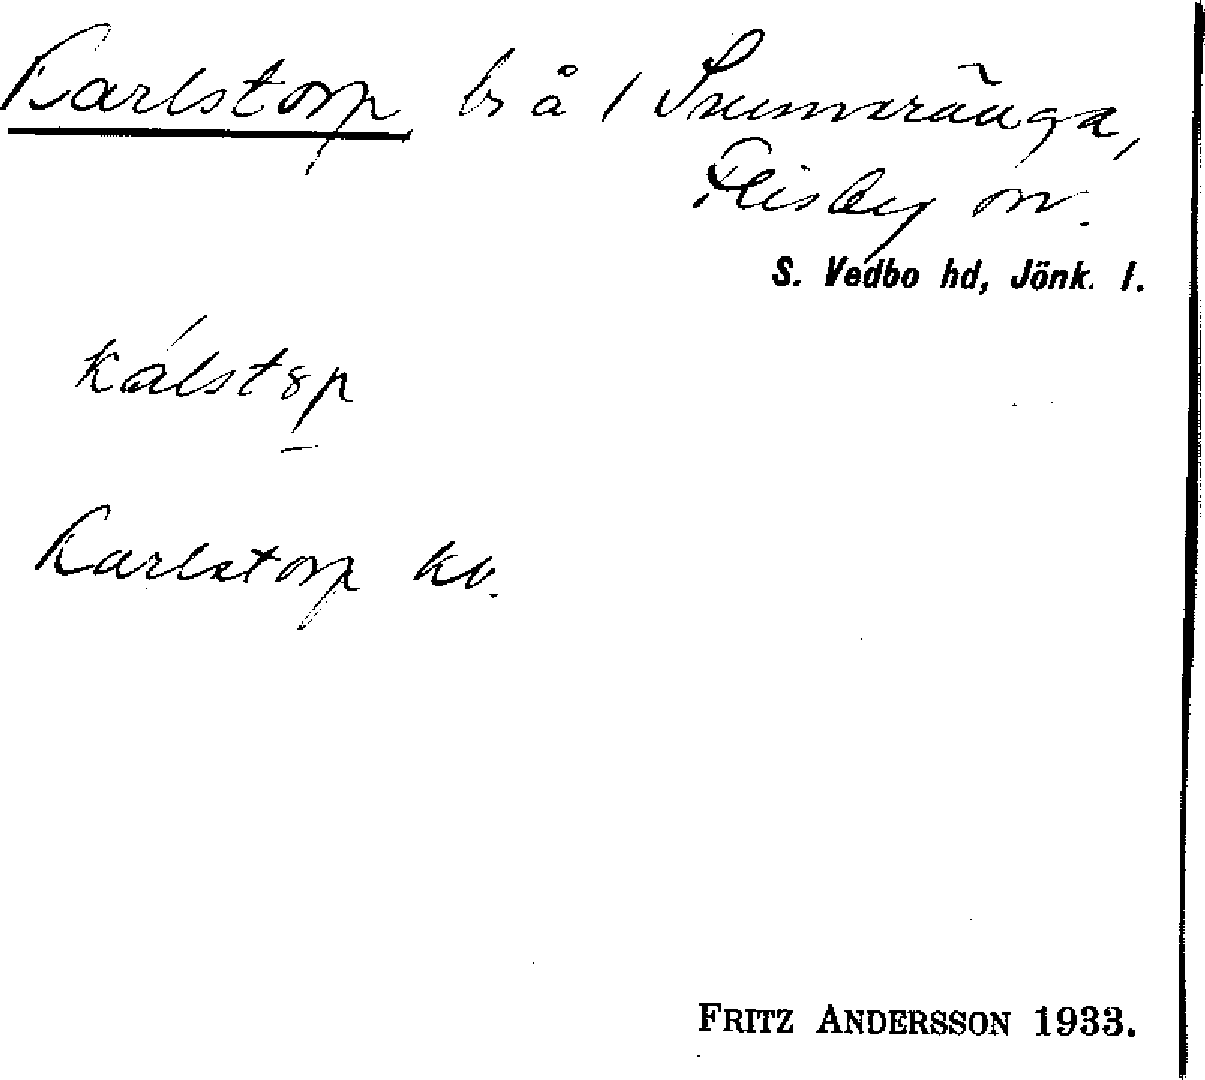 Karlstorp bs å / Snuvaränga,
Flisby sn.
S. Vedbo hd, Jönk. l.
kálstɞp
Karlstorp kv.
FRITZ ANDERSSON 1933.